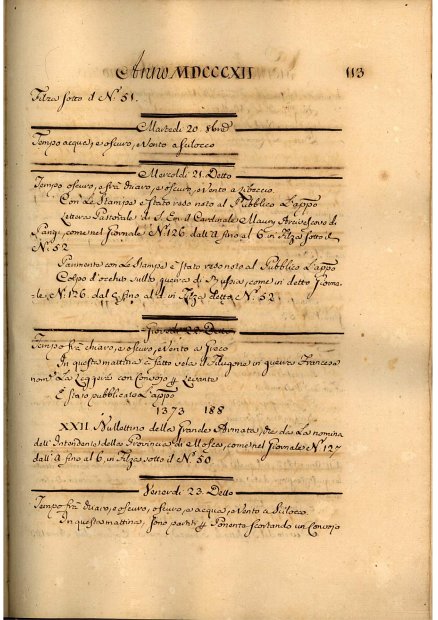 Anno MDCCCXII 113
Filza sotto il N.° 51.
Martedì 20. 8bre
Tempo acqua, e oscuro, e Vento a Scilocco
Mercoldì 21. Detto
Tempo oscuro, e frà chiaro, e oscuro, e Vento a
Con Le Stampe è Stato reso noto al Pubblico L'appo
Lettera Pastorale di S. Em. il Cardinale Maury Arcivescovo di
Parigi, come nel Giornale N.° 126. dall'a fino al 6 in Filza sotto il
N.° 52
Parimente con Le Stampe è Stato reso noto al Pubblico L'appo
Colpo d'occhio sulla guerra di Russia, come in detto Giorna-
le N.° 126. dal fino al in Filza detta N.° 52.
Giovedì 22. Detto
Tempo frà chiaro, e oscuro, e Vento a Greco
In questa mattina è fatto vela il Filugone in guerra Francese
nom.° La Leggera con Convojo Levante
È Stato pubblicato L'appo
1373 188
XXII Bullettino della Grande Armata, che dà La nomina
dell'Intendente della Provincia di Mosca, come nel Giornale N.° 127
dall'a fino al 6, in Filza sotto il N.° 50
Venerdì 23. Detto
Tempo frà chiaro, e oscuro, oscuro, e acqua, e Vento a Scilocco
In questa mattina, sono partiti Ponente scortando un Convojo